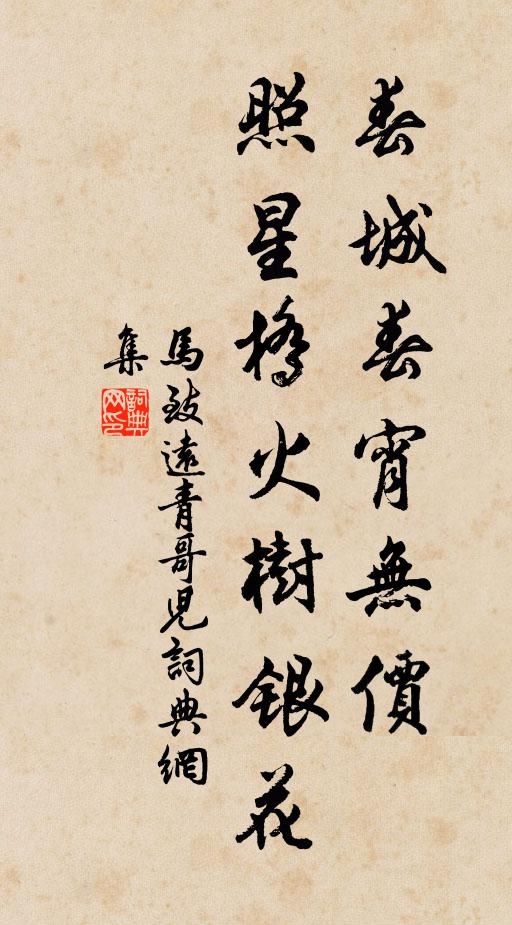 春城春宵無價
照星橋火樹銀花
馬致遠青哥兒詞典網
集
詞典
网印